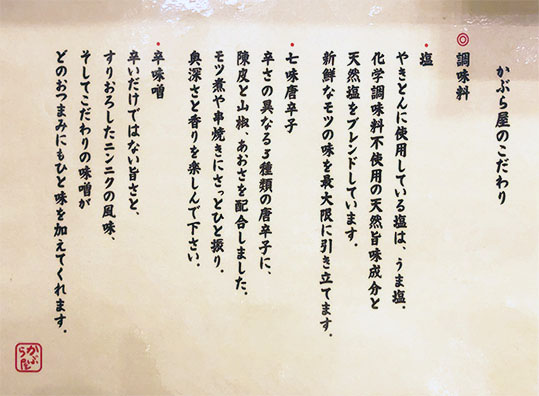 かぶら屋のこだわり
◎調味料
・塩
やきとんに使用している塩は、うま塩。
化学調味料不使用の天然旨味成分と
天然塩をブレンドしています。
新鮮なモツの味を最大限に引き立てます。
・七味唐辛子
辛さの異なる3種類の唐辛子に、
陳皮と山椒、あおさを配合しました。
モツ煮や串焼きにさっとひと振り。
奥深さと香りを楽しんで下さい。
・辛味噌
辛いだけではない旨さと、
すりおろしたニンニクの風味、
そしてこだわりの味噌が
どのおつまみにもひと味を加えてくれます。
かぶら屋